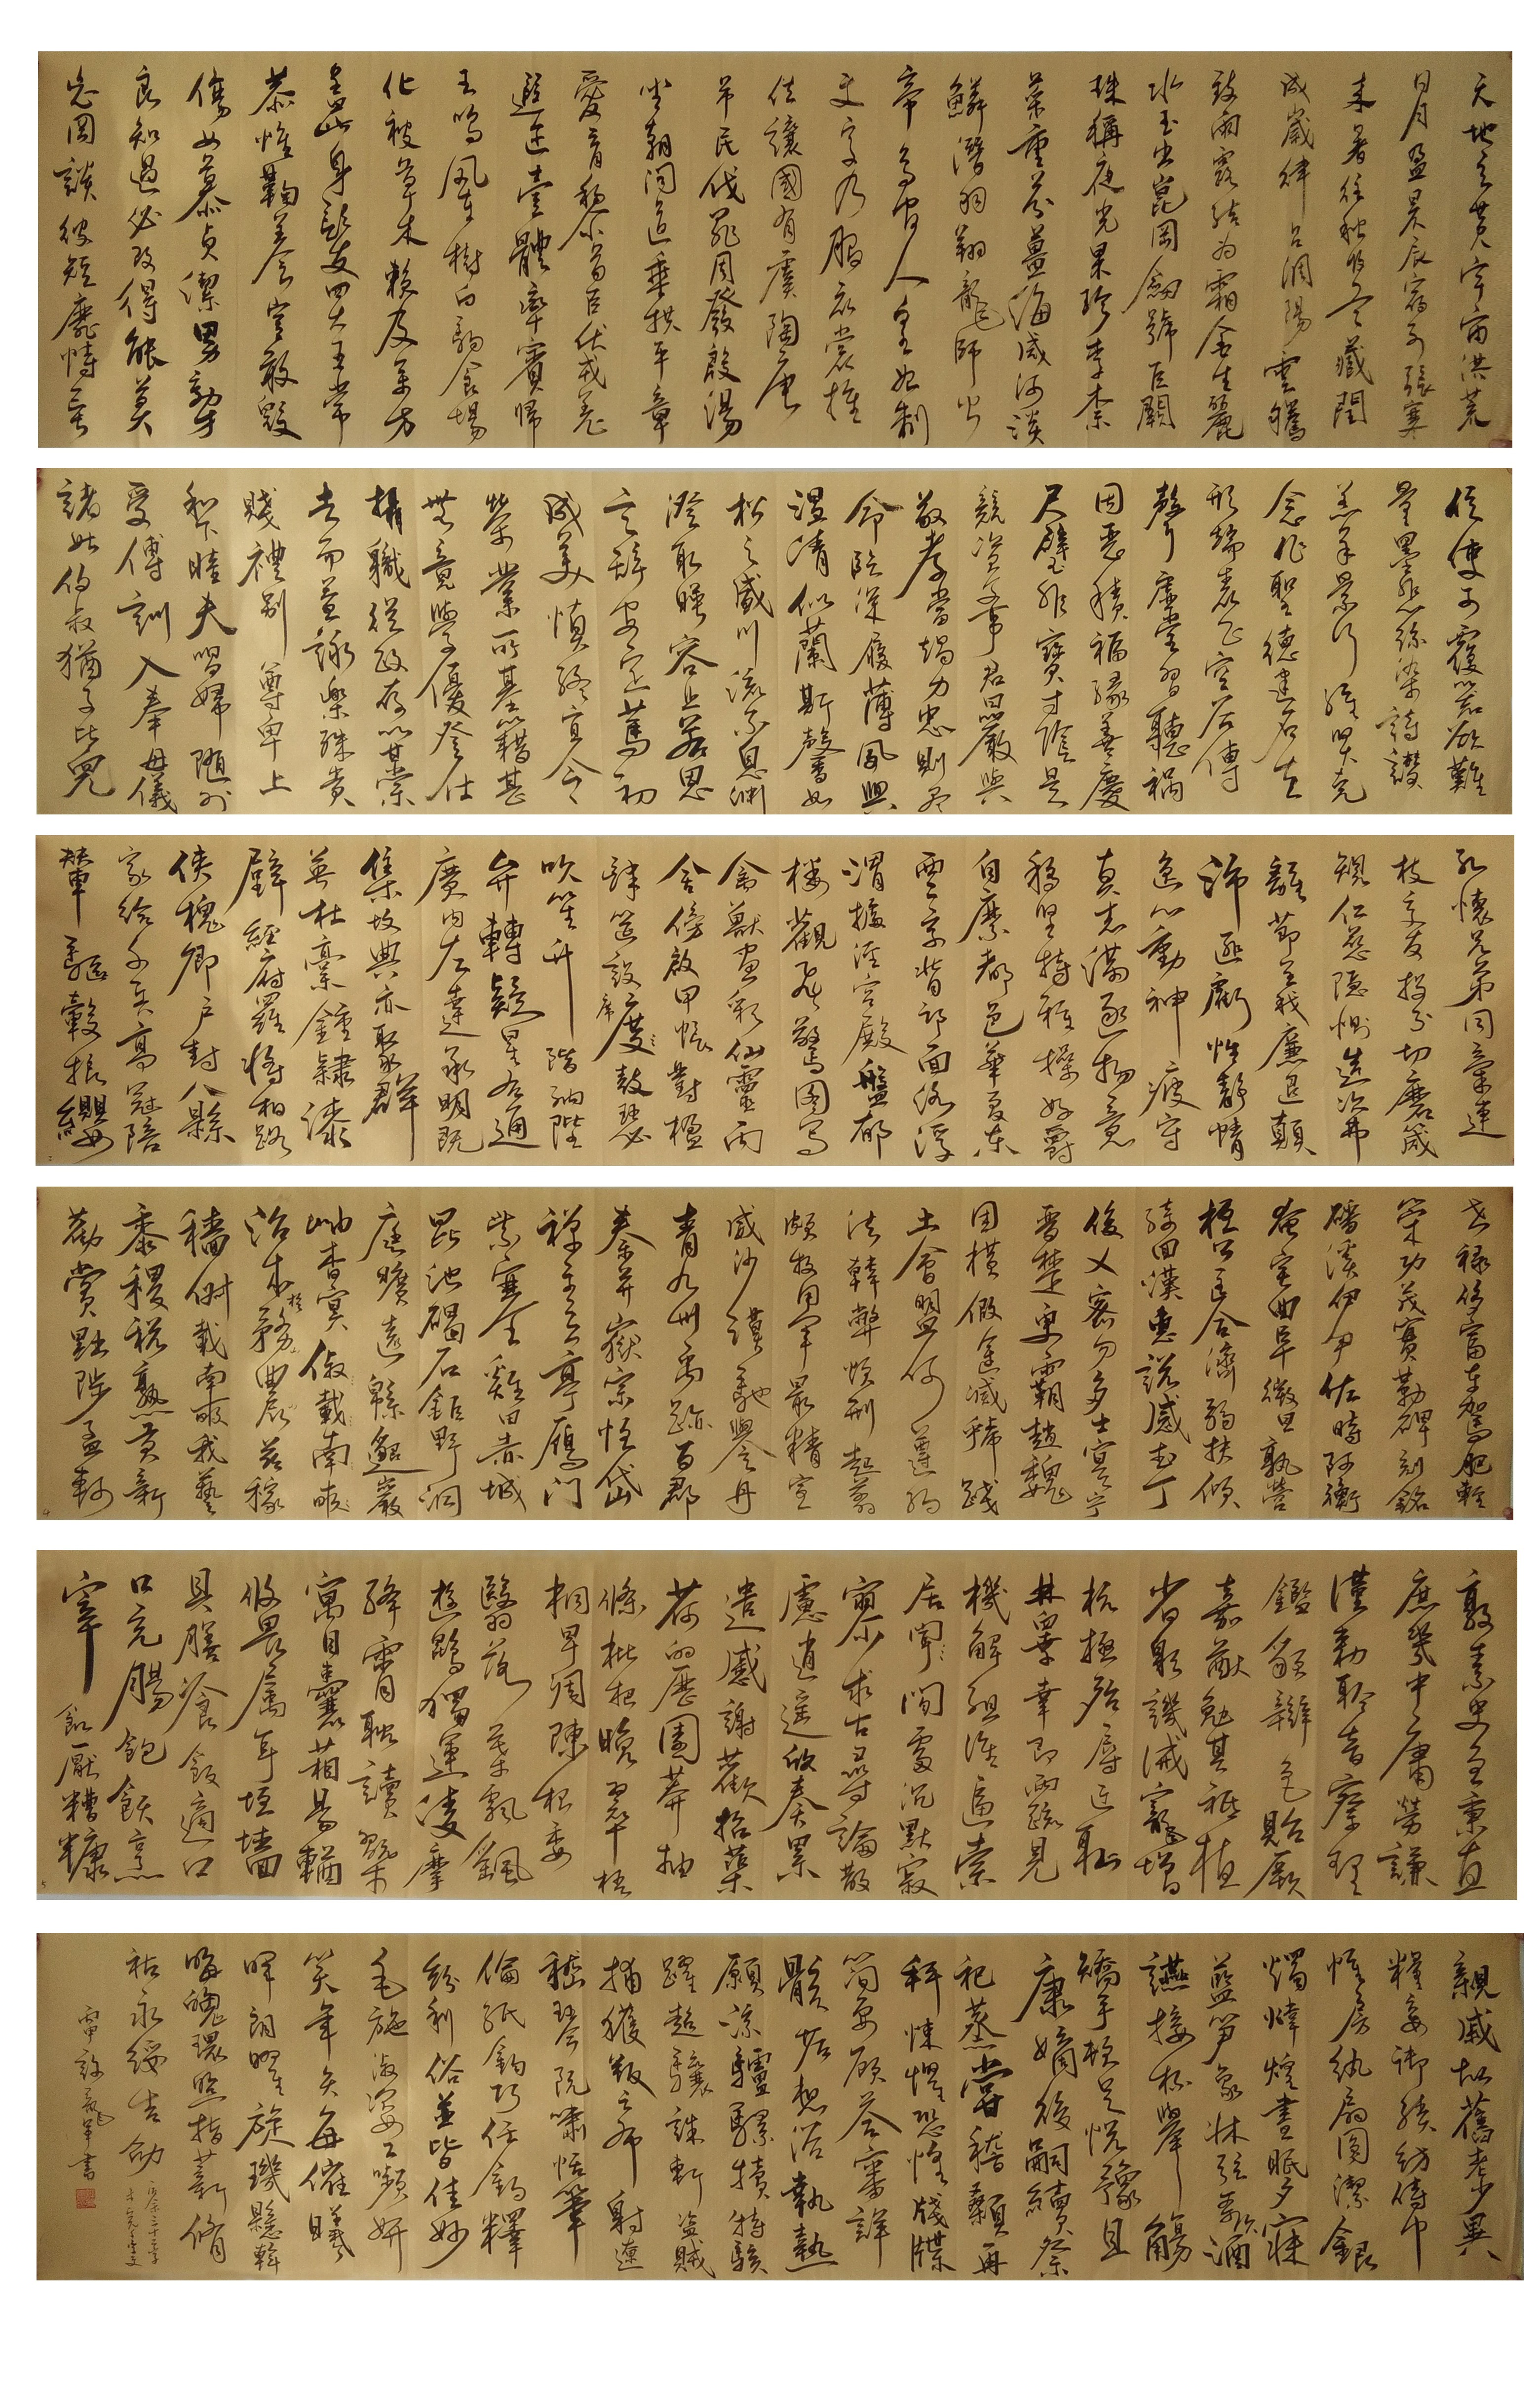 天地玄黄宇宙洪荒
日月盈昃辰宿列張寒
来暑往秋收冬藏閏
成歲律呂調陽雲騰
致雨露結為霜金生麗
水玉出崑岡劍號巨闕
珠稱夜光果珍李柰
菜重芥薑海咸河淡
鱗潛羽翔龍師火
帝鳥官人皇始制
文字乃服衣裳推
位讓國有虞陶唐
吊民伐罪周發殷湯
坐朝問道垂拱平章
愛育黎首臣伏戎羌
遐迩壹體率賓歸
王鳴鳳在樹白駒食場
化被草木賴及萬方
蓋此身髮四大五常
恭惟鞠養豈敢毀
傷女慕貞潔男効才
良知過必改得能莫
忘罔談彼短靡恃長
信使可覆器欲難
量墨悲絲染詩讚
羔羊景行維賢克
念作聖德建名立
形端表正空谷傳
聲虛堂習聽禍
因惡積福緣善慶
尺璧非寶寸陰是
競資父事君曰嚴與
敬孝當竭力忠則盡
命臨深履薄夙興
温清似蘭斯馨如
松之盛川流不息淵
澄取暎容止若思
言辭安定篤初
誠美慎終宜令
榮業所基籍甚
無竟學優登仕
攝職從政存以甘棠
去而益詠樂殊貴
賤禮別尊卑上
和下睦夫唱婦隨外
受傅訓入奉母儀
諸姑伯叔猶子比兒
孔懷兄弟同氣連
枝交友投分切磨箴
規仁慈隱惻造次弗
離節義廉退顛
沛匪虧性靜情
逸心動神疲守
真志滿逐物意
移堅持雅操好爵
自縻都邑華夏東
西二京背邙面洛浮
渭據涇宮殿盤郁
樓觀飛驚圖寫
禽獸畫彩仙靈丙
舍傍啟甲帳對楹
肆筵設度席鼓瑟
吹笙升階納陛
弁轉疑星右通
廣内左達承明既
集坟典亦聚群
英杜稾鍾隸漆
壁經府羅將相路
俠槐卿户封八縣
家給千兵高冠陪
輦驅轂振纓
世祿侈富車駕肥輕
策功茂實勒碑刻銘
磻溪伊尹佐時阿衡
奄宅曲阜微旦孰營
桓公匡合濟弱扶傾
綺回漢惠說感武丁
俊乂密勿多士寔寧
晋楚更霸趙魏
困横假途滅虢踐
土會盟何遵約
法韓弊煩刑起翦
頗牧用軍最精宣
威沙漠馳譽丹
青九州禹跡百郡
秦并嶽宗恒岱
禪主云亭雁門
紫塞雞田赤城
昆池碣石鉅野洞
庭曠遠緜邈巖
岫杳冥俶載南畝
治本於務農兹稼
穡俶載南畝我藝
黍稷税熟貢新
勸賞黜陟孟軻
敦素史魚秉直
庶幾中庸勞謙
謹勅聆音察理
鑑貌辯色貽厥
嘉猷勉其祗植
省躬譏誡寵增
抗極殆辱近恥
林皋幸即兩疏見
機解組誰逼索
居閑處沉默寂
寥求古尋論散
慮逍遥欣奏累
遣慼謝歡招渠
荷的歷園莽抽
條枇杷晚翠梧
桐早凋陳根委
翳落葉飄颻
遊鵾獨運凌摩
絳霄耽讀翫市
寓目囊箱易輶
攸畏屬耳垣墙
具膳飡飯適口
口充腸飽飫烹
宰飢厭糟糠
親戚故舊老少異
糧妾御績紡侍巾
帷房紈扇圓潔銀
燭煒煌晝眠夕寐
藍笋象牀弦歌酒
讌接杯舉觴
矯手頓足悅豫且
康嫡後嗣續祭
祀蒸嘗稽顙再
拜悚懼恐惶牋牒
簡要顧答審詳
骸垢想浴執熱
願涼驢騾犢特駭
躍超驤誅斬盜賊
捕獲叛亡布射遼
嵇琴阮嘯恬筆
倫紙鈞巧任釣釋
紛利俗並皆佳妙
毛施淑姿工嚬妍
笑年矢每催曦
暉朗曜旋璣懸斡
晦魄環照指薪脩
祜永綏吉劭